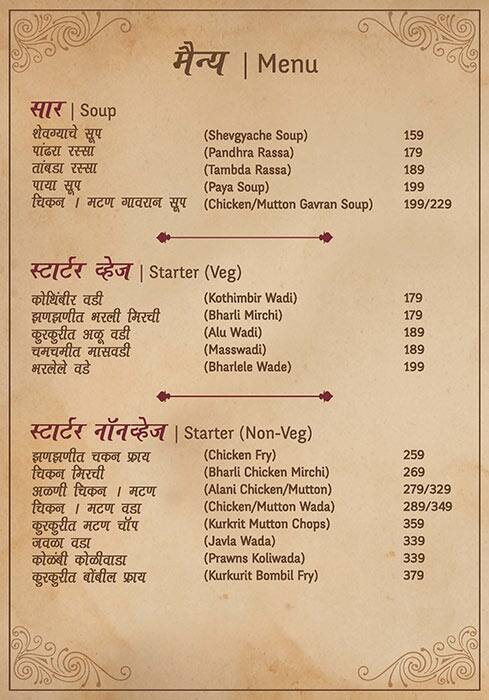 मैन्य | Menu
सार | Soup
शेवग्याचे सूप (Shevgyache Soup) 159
पांढरा रस्सा (Pandhra Rassa) 179
तांबडा रस्सा (Tambda Rassa) 189
पाया सूप (Paya Soup) 199
चिकन / मटण गावरान सूप (Chicken/Mutton Gavran Soup) 199/229
स्टार्टर व्हेज | Starter (Veg)
कोथिंबीर वडी (Kothimbir Wadi) 179
झणझणीत भरली मिरची (Bharli Mirchi) 179
कुरकुरीत अळू वडी (Alu Wadi) 189
चमचमीत मासवडी (Masswadi) 189
भरलेले वडे (Bharlele Wade) 199
स्टार्टर नॉनव्हेज | Starter (Non-Veg)
झणझणीत चकन फ्राय (Chicken Fry) 259
चिकन मिरची (Bharli Chicken Mirchi) 269
अळणी चिकन / मटण (Alani Chicken/Mutton) 279/329
चिकन / मटण वडा (Chicken/Mutton Wada) 289/349
कुरकुरीत मटण चॉप (Kurkrit Mutton Chops) 359
जवळा वडा (Javla Wada) 339
कोळंबी कोळीवाडा (Prawns Koliwada) 339
कुरकुरीत बोंबील फ्राय (Kurkurit Bombil Fry) 379